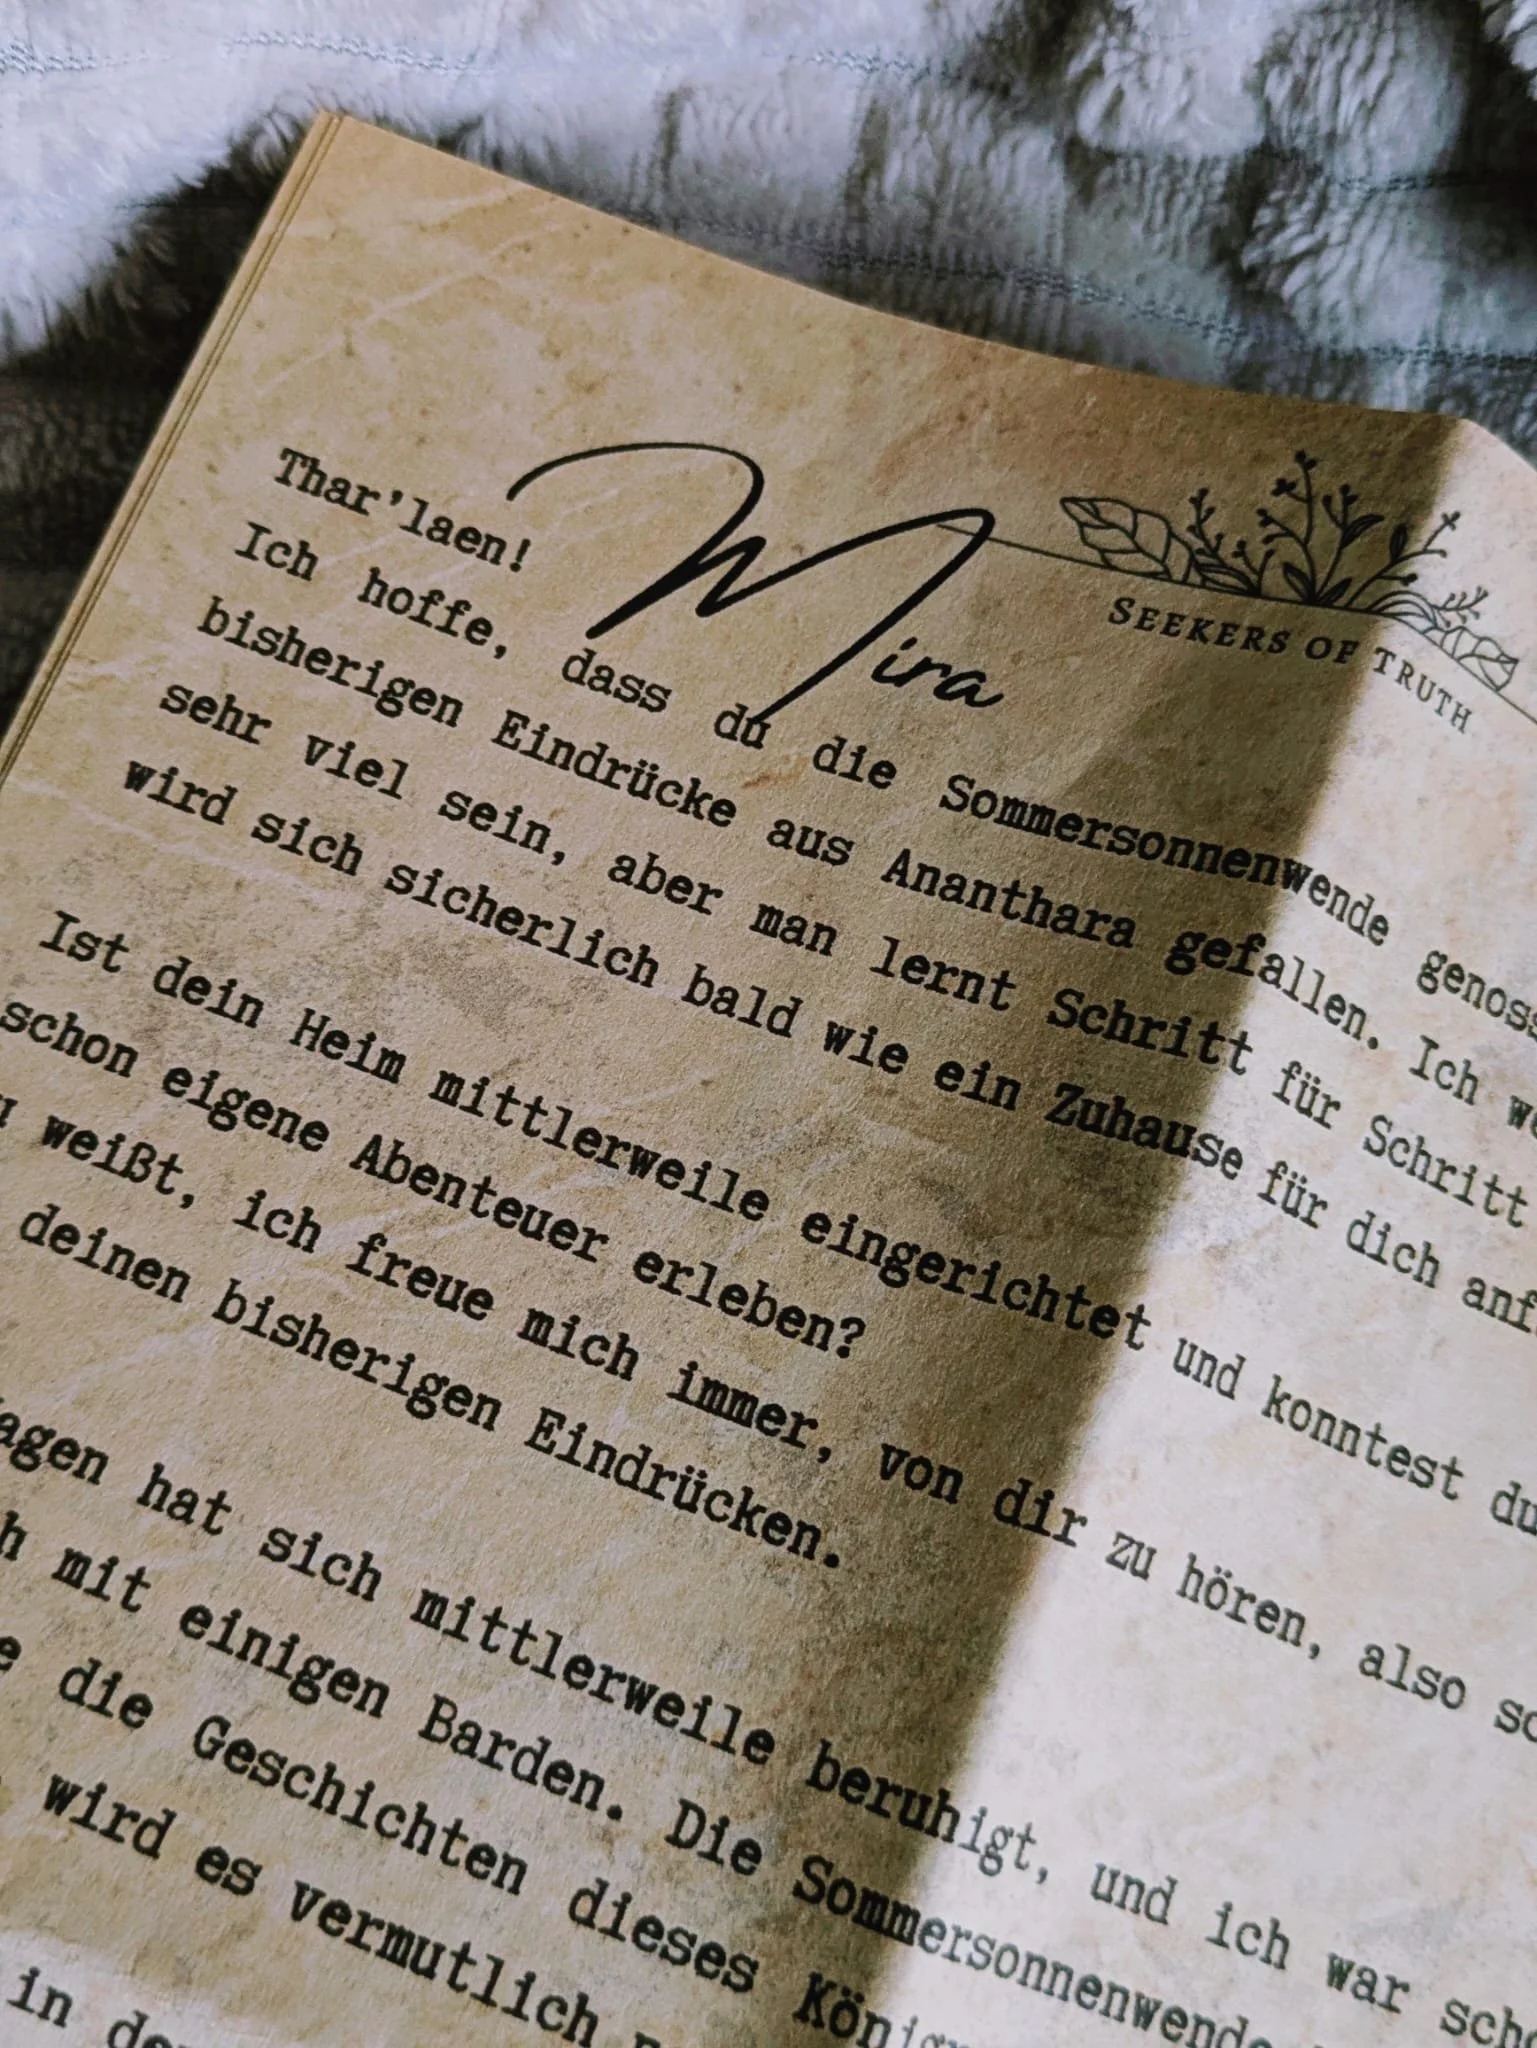 Mira
SEEKERS OF TRUTH
Thar'laen!
Ich hoffe, dass du die Sommersonnenwende
bisherigen Eindrücke aus Ananthara gefallen. Ich
sehr viel sein, aber man lernt Schritt für Schritt
wird sich sicherlich bald wie ein Zuhause für dich
Ist dein Heim mittlerweile eingerichtet und konntest du
schon eigene Abenteuer erleben?
weißt, ich freue mich immer, von dir zu hören, also
deinen bisherigen Eindrücken.
hat sich mittlerweile beruhigt, und ich war
mit einigen Barden. Die Sommersonnenwende
die Geschichten dieses
wird es vermutlich
in